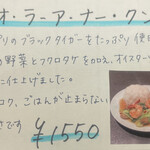 オ・ラ・アー・ナー・クン
プリのブラックタイガーをたっぷり使
の野菜とフクロタケを加え、オイスター
に仕上げました。
コク、ごはんが止まらない
さです ¥1550